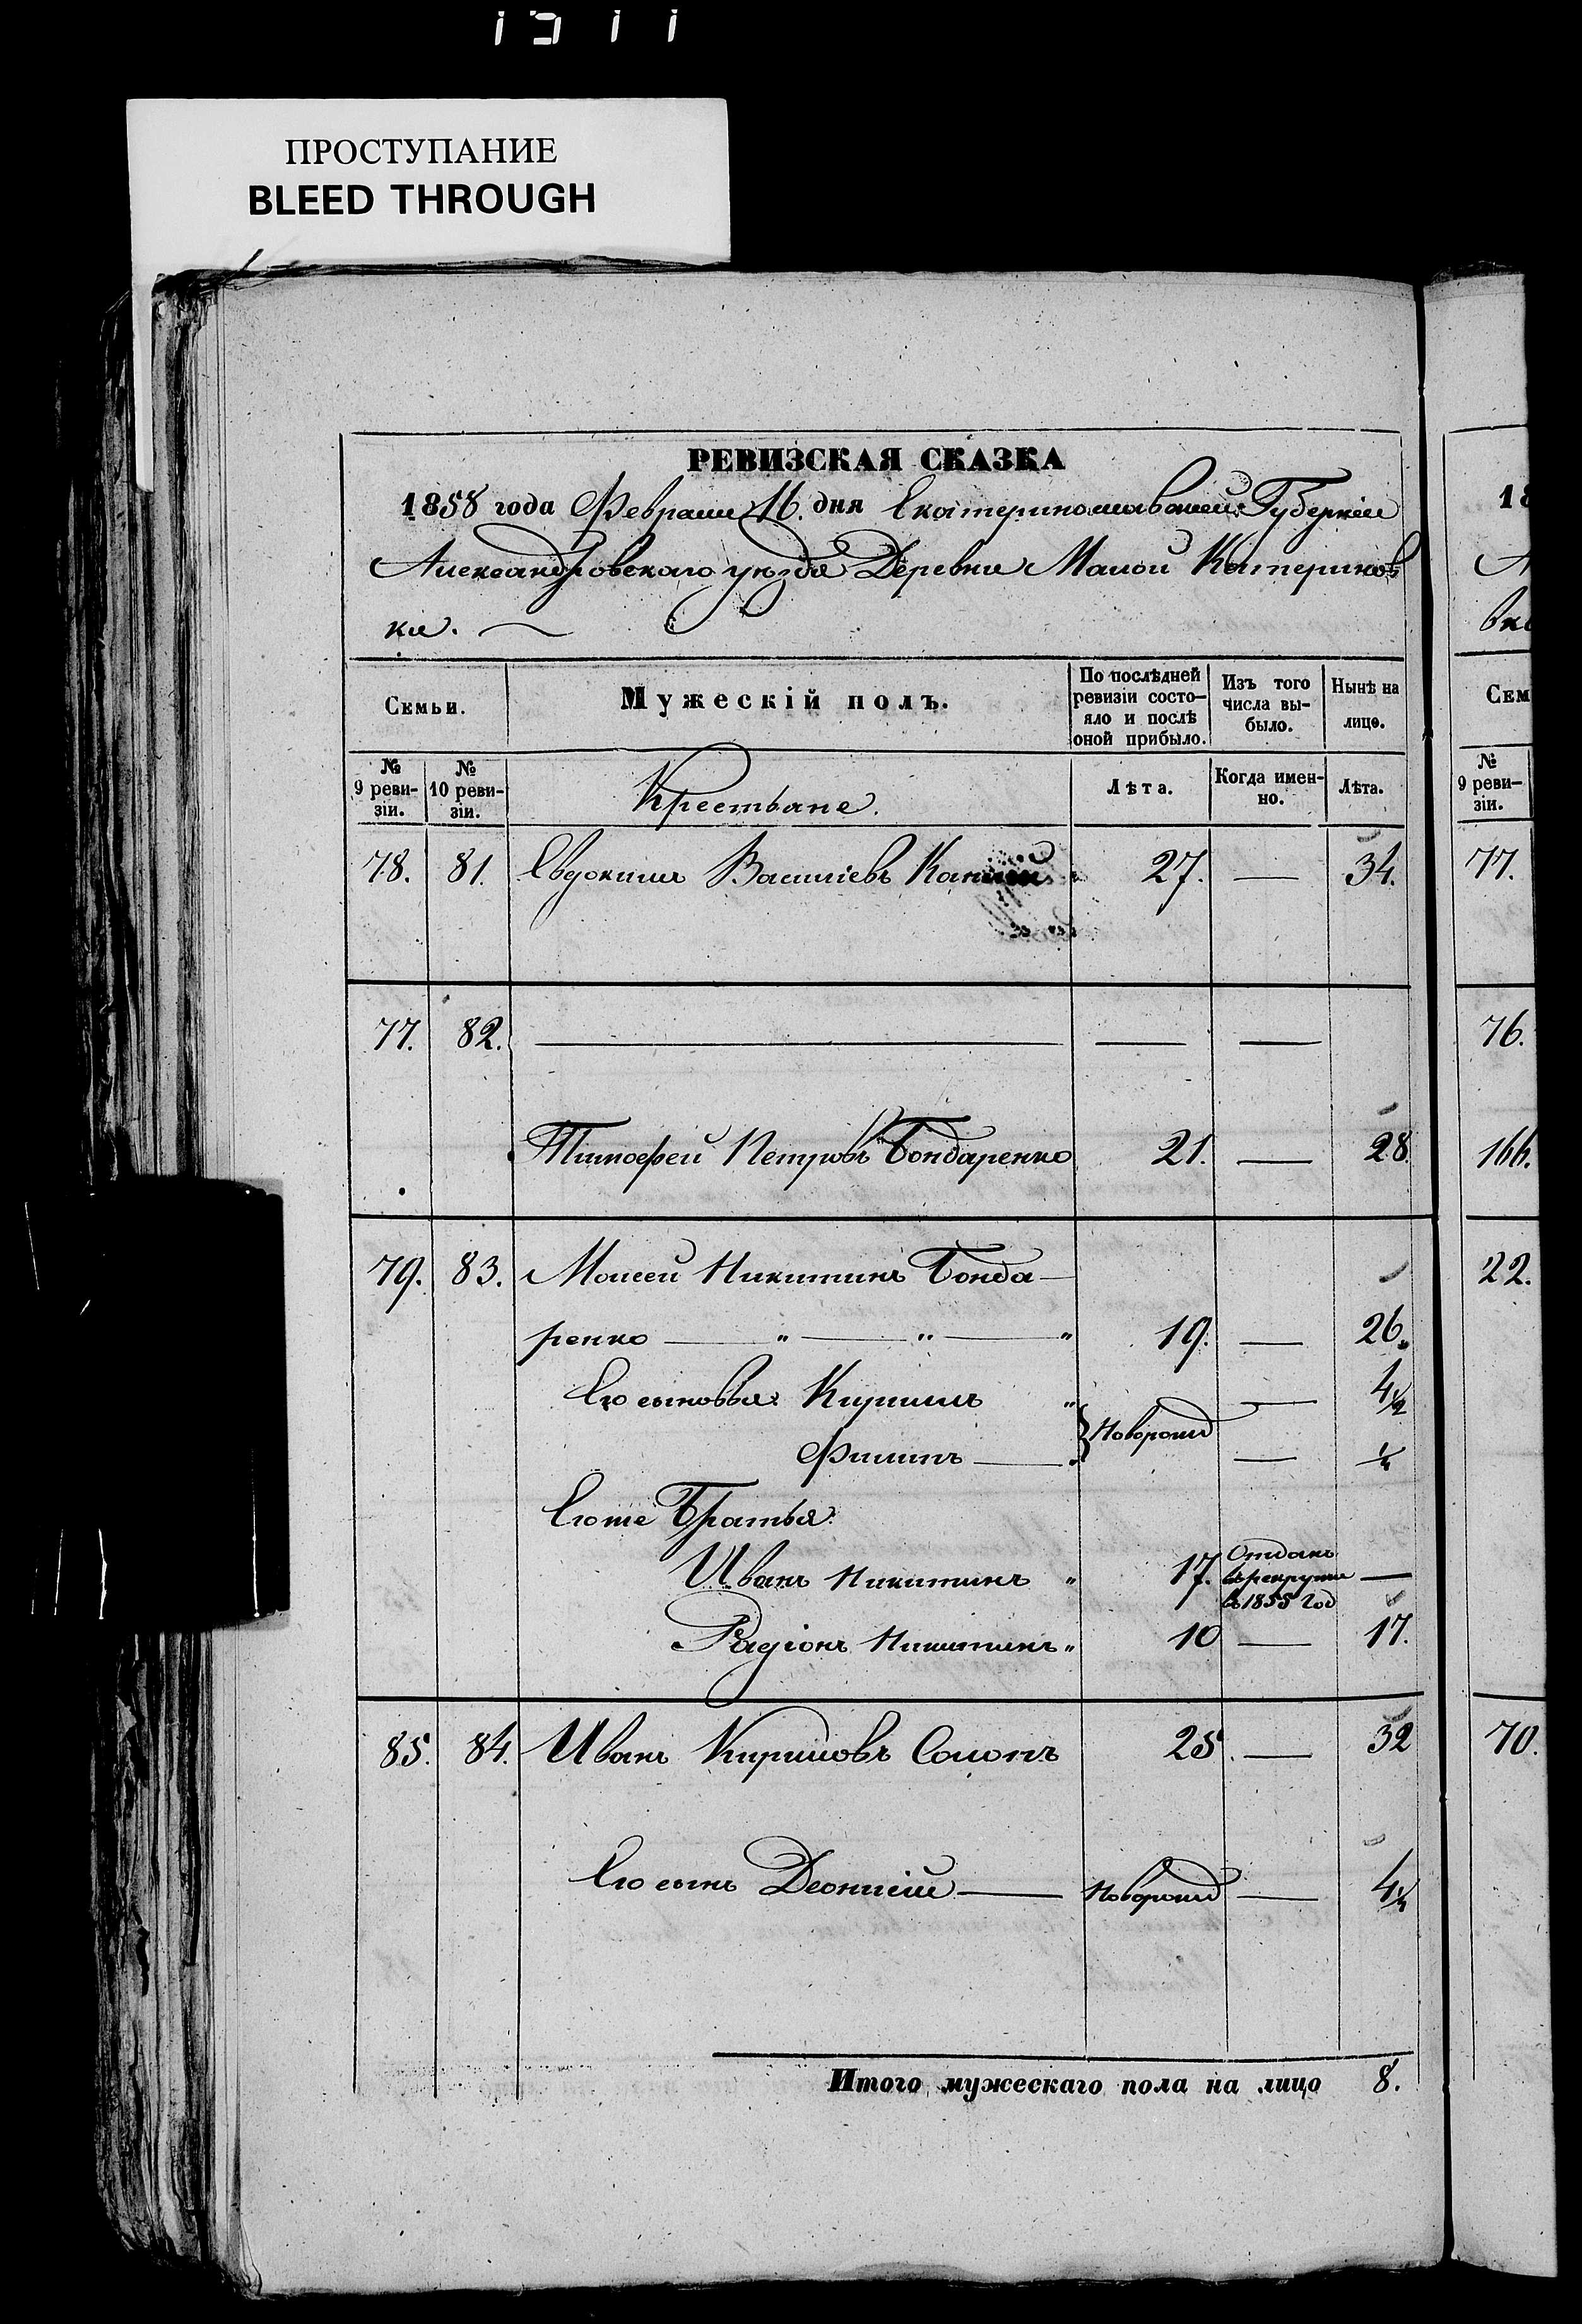 ПРОСТУПАНИЕ
BLEED THROUGH
РЕВИЗСКАЯ СКАЗКА
1858 года Февраля 16. дня Екатеринославской Губерніи
Александровскаго уѣзда Деревни Малой Катеринов
ки.
Семьи. Мужескій полъ. По послѣдней ревизіи состо- яло и послѣ оной прибыло. Изъ того числа вы- было. Нынѣ на лице.
№ 9 реви- зіи. № 10 реви- зіи. Крестьяне. Лѣта. Когда имен- но. Лѣта.
78. 81. Евдокимъ Васильевъ 27. — 34.
77. 82. — — —
Тимофей Петровъ Бондаренко 21. — 28.
79. 83. Моисей Никитинъ Бонда-
ренко — " — " — " 19. — 26.
Его сыновья: Кирилъ " Новорожд — 4½
Филипъ — " — ½
Егоже Братья:
Иванъ Никитинъ " 17. Отданъ въ рекруты въ 1855 год —
Радіонъ Никитинъ " 10 — 17.
85. 84. Иванъ Кириловъ Солопъ 25. — 32
Его сынъ Деонисій — Новорожд — 4½
Итого мужескаго пола на лицо 8.
18
А
вк
Сем
№
9 реви-
зіи.
77.
76.
166.
22.
70.